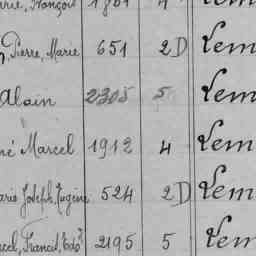 rie, François 1861 4 Lem
Pierre, Marie 651 2D Lem
Alain 2305 5 Lem
né Marcel 1912 4 Lem
arie Joseph, Eugène 524 2D Lem
cel, Francis, Edo 2195 5 Lem